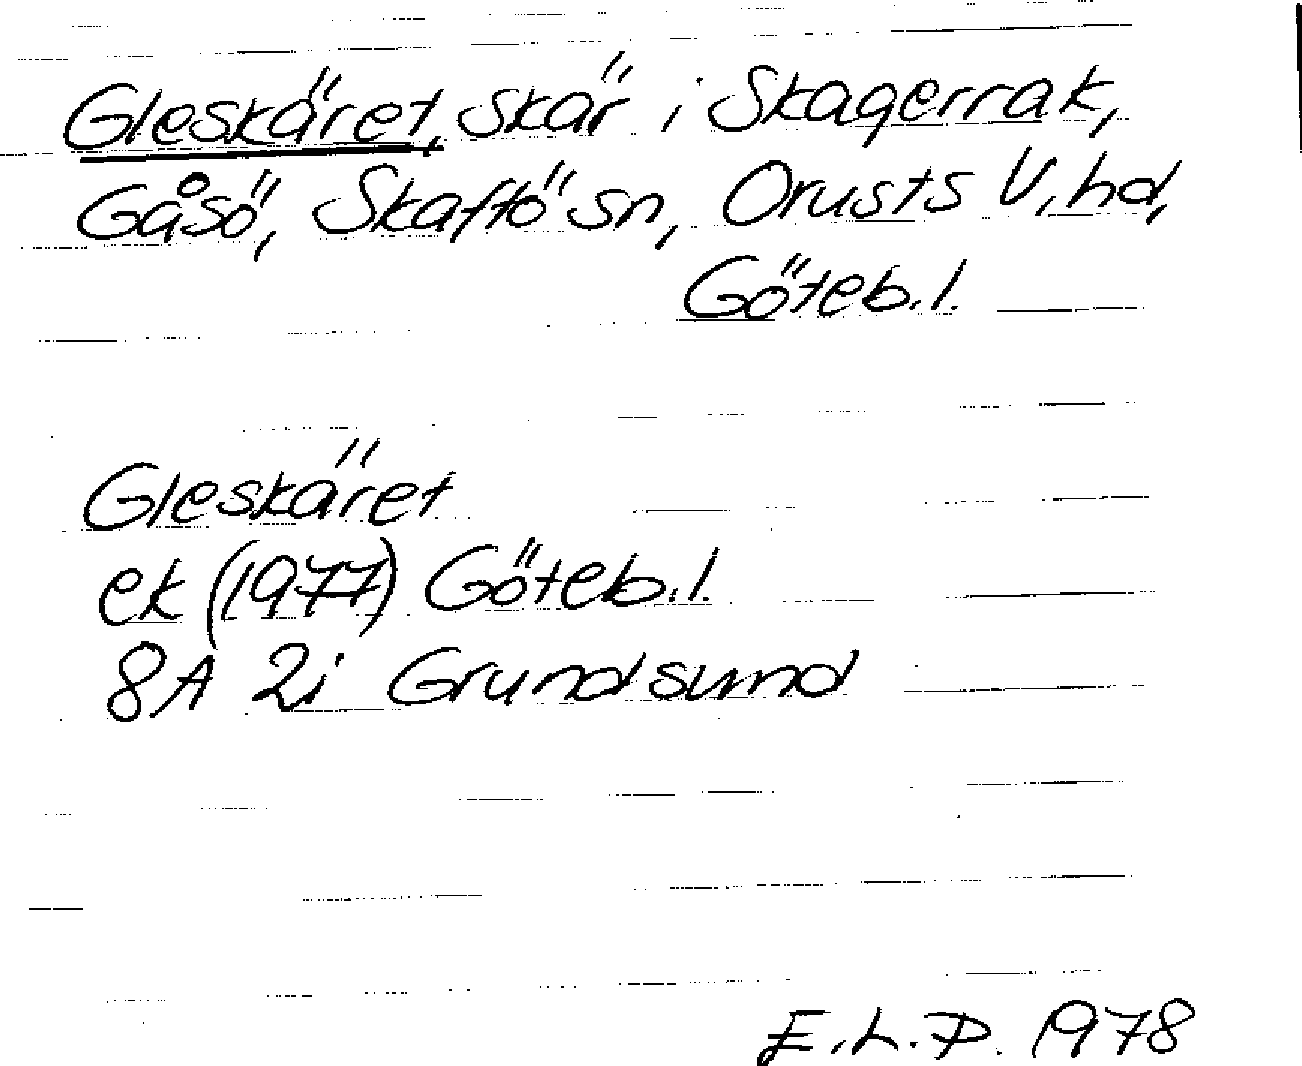 Gleskäret, skär i Skagerrak,
Gåsö, Skaftö sn, Orusts V. hd,
Göteb. l.
Gleskäret
ek (1977) Göteb. l.
8A 2i Grundsund
E.L.P. 1978